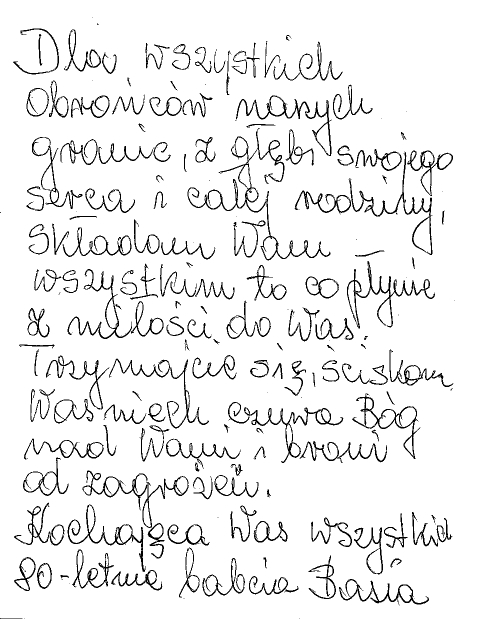 Dla wszystkich
obrońców naszych
granic, z głębi swojego
serca i całej rodziny,
składam Wam –
wszystkim to co płynie
z miłości do Was.
Trzymajcie się, ściskam
Was niech czuwa Bóg
nad Wami i broni
od zagrożeń.
Kochająca Was wszystkich
80-letnia babcia Basia